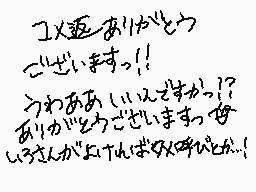 コメ返ありがとう
ございますっ!!
うわああ いいんですかっ!?
ありがとうございますっ
いろさんがよければタメ呼びとか…!